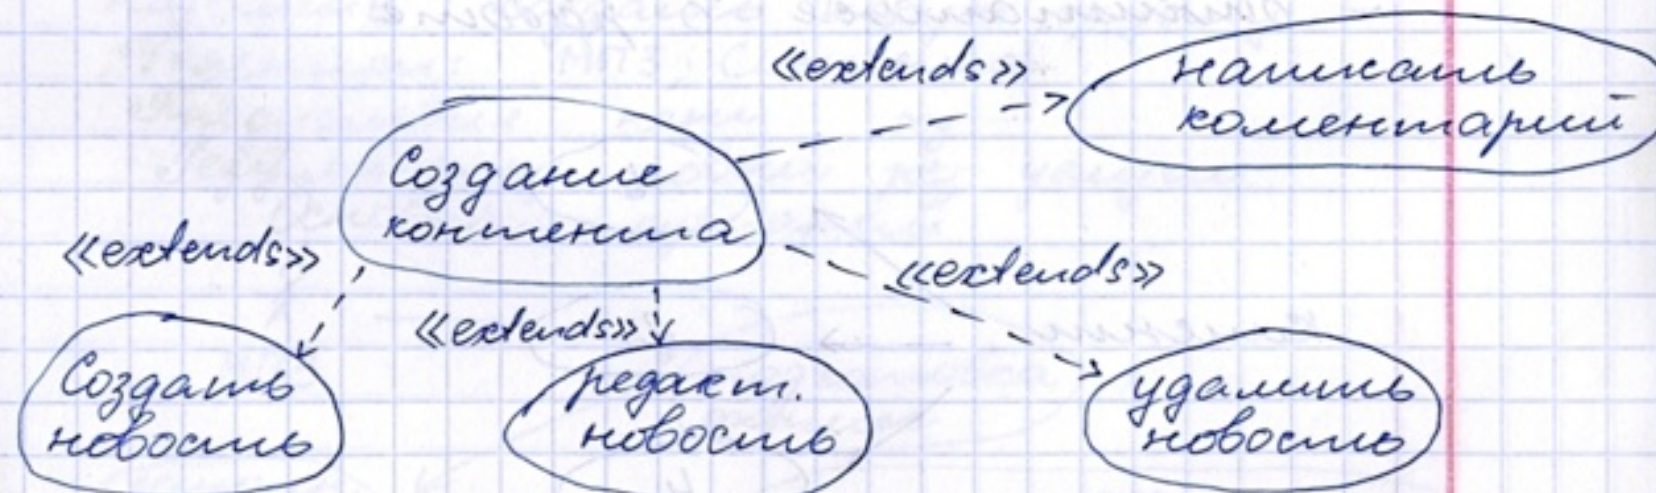 «extends»
написать
коментарий
Создание
контента
«extends»
«extends»
«extends»
Создать
новость
редакт.
новость
удалить
новость